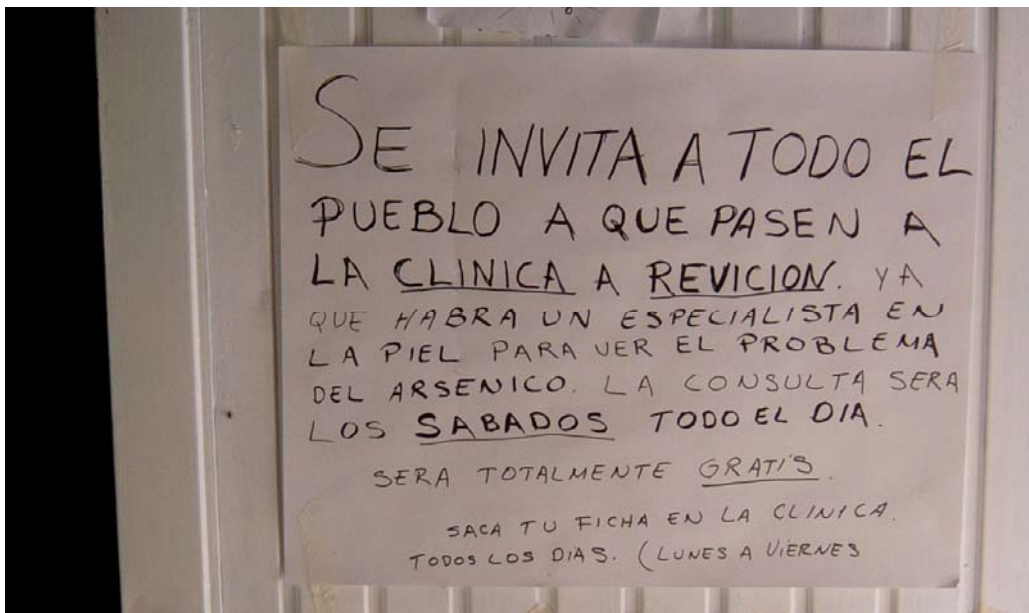 SE INVITA A TODO EL
PUEBLO A QUE PASEN A
LA CLINICA A REVICION. YA
QUE HABRA UN ESPECIALISTA EN
LA PIEL PARA VER EL PROBLEMA
DEL ARSENICO. LA CONSULTA SERA
LOS SABADOS TODO EL DIA.
SERA TOTALMENTE GRATIS.
SACA TU FICHA EN LA CLINICA.
TODOS LOS DIAS. (LUNES A VIERNES